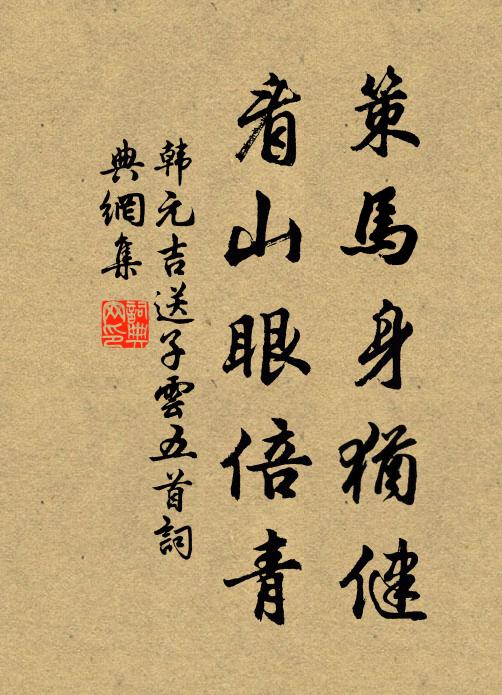 策馬身猶健
看山眼倍青
韩元吉送子雲五首詞
典網集
詞典
网印